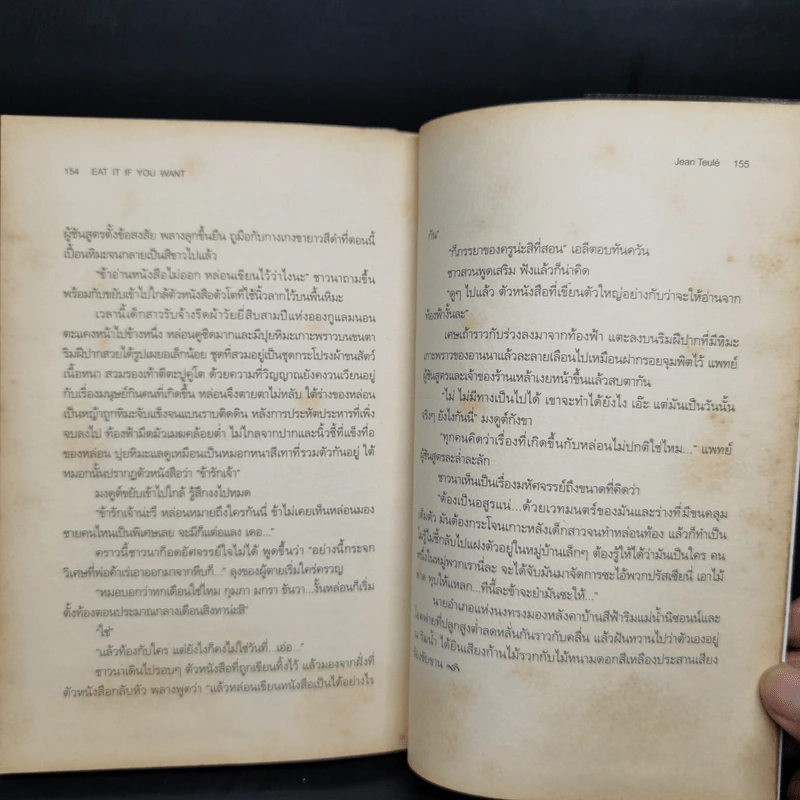 154 EAT IT IF YOU WANT
ผู้ชันสูตรตั้งข้อสงสัย พลางลุกขึ้นยืน ถูมือกับกางเกงขายาวสีดำที่ตอนนี้
เปื้อนหิมะจนกลายเป็นสีขาวไปแล้ว
"ข้าอ่านหนังสือไม่ออก หล่อนเขียนไว้ว่าไงนะ" ชาวนาถามขึ้น
พร้อมกับขยับเข้าไปใกล้ตัวหนังสือตัวโตที่ใช้นิ้วลากไว้บนพื้นหิมะ
เวลานี้เด็กสาวรับจ้างรีดผ้าวัยยี่สิบสามปีแห่งออกูแลมนอน
ตะแคงหน้าไปข้างหนึ่ง หล่อนดูซีดมากและมีปุยหิมะเกาะพราวบนขนตา
ริมฝีปากสวยได้รูปเผยอเล็กน้อย ชุดที่สวมอยู่เป็นชุดกระโปรงผ้าขนสัตว์
เนื้อหนา สวมรองเท้าตีตะปูคู่โต ด้วยความที่วิญญาณยังคงวนเวียนอยู่
กับเรื่องมนุษย์กินคนที่เกิดขึ้น หล่อนจึงตายตาไม่หลับ ใต้ร่างของหล่อน
เป็นหญ้าถูกหิมะจับแข็งจนแบนราบติดดิน หลังการประหัตประหารที่เพิ่ง
จบลงไป ท้องฟ้ามืดมัวเมฆคล้อยต่ำ ไม่ไกลจากปากและนิ้วชี้ที่แข็งทื่อ
ของหล่อน ปุยหิมะแลดูเหมือนเป็นหมอกหนาสีเทาที่รวมตัวกันอยู่ ใต้
หมอกนั้นปรากฏตัวหนังสือว่า "ข้ารักเจ้า"
มงดูต์ขยับเข้าไปใกล้ รู้สึกงงไปหมด
"ข้ารักเจ้าน่ะรึ หล่อนหมายถึงใครกันนี่ ข้าไม่เคยเห็นหล่อนมอง
ชายคนไหนเป็นพิเศษเลย จะมีก็แต่อแลง เดอ..."
คราวนี้ชาวนาก็อดอัศจรรย์ใจไม่ได้ พูดขึ้นว่า "อย่างนี้กระจก
วิเศษที่พ่อค้าเร่เอาออกมาจากหีบก็..." ลุงของผู้ตายเริ่มใคร่ครวญ
"หมอบอกว่าหกเดือนใช่ไหม กุมภา มกรา ธันวา...งั้นหล่อนก็เริ่ม
ตั้งท้องตอนประมาณกลางเดือนสิงหาน่ะสิ"
"ใช่"
"แล้วท้องกับใคร แต่ยังไงก็คงไม่ใช่วันที่...เอ่อ..."
ชาวนาเดินไปรอบๆ ตัวหนังสือที่ถูกเขียนทิ้งไว้ แล้วมองจากฝั่งที่
ตัวหนังสือกลับหัว พลางพูดว่า "แล้วหล่อนเขียนหนังสือเป็นได้อย่างไร
Jean Teulé 155
กัน"
"ก็ภรรยาของครูน่ะสิที่สอน" เอลีตอบทันควัน
ชาวสวนพูดเสริม ฟังแล้วก็น่าคิด
"ดูๆ ไปแล้ว ตัวหนังสือที่เขียนตัวใหญ่อย่างกับว่าจะให้อ่านจาก
ท้องฟ้างั้นละ"
เศษเถ้าราวกับร่วงลงมาจากท้องฟ้า แตะลงบนริมฝีปากที่มีหิมะ
เกาะพราวของอานนาแล้วละลายเลือนไปเหมือนฝากรอยจุมพิตไว้ แพทย์
ผู้ชันสูตรและเจ้าของร้านเหล้าเงยหน้าขึ้นแล้วสบตากัน
"ไม่ ไม่มีทางเป็นไปได้ เขาจะทำได้ยังไง เอ๊ะ แต่มันเป็นวันนั้น
จริงๆ ยังไงกันนี่" มงดูต์กังขา
"ทุกคนคิดว่าเรื่องที่เกิดขึ้นกับหล่อนไม่ปกติใช่ไหม..." แพทย์
ผู้ชันสูตรละล่ำละลัก
ชาวนาเห็นเป็นเรื่องมหัศจรรย์ถึงขนาดที่คิดว่า
"ต้องเป็นอสูรแน่...ด้วยเวทมนตร์ของมันและร่างที่มีขนคลุม
เต็มตัว มันต้องกระโจนเกาะหลังเด็กสาวจนทำหล่อนท้อง แล้วก็ทำเป็น
ไม่รู้ไม่ชี้กลับไปแฝงตัวอยู่ในหมู่บ้านเล็กๆ ต้องรู้ให้ได้ว่ามันเป็นใคร คน
หนึ่งในหมู่พวกเรานี่ละ จะได้จับมันมาจัดการซะไอ้พวกปรัสเซียนี่ เอาไม้
ทุบให้แหลก...ทีนี้ละข้าจะยำมันซะให้..."
นายอำเภอแห่งนงทรงมองหลังคาบ้านสีฟ้าริมแม่น้ำนิซอนน์และ
ที่ปลูกสูงต่ำลดหลั่นกันราวกับคลื่น แล้วฝันหวานไปว่าตัวเองอยู่
ริมน้ำ ได้ยินเสียงก้านไม้รวกกับไม้หนามดอกสีเหลืองประสานเสียง
ขับขาน